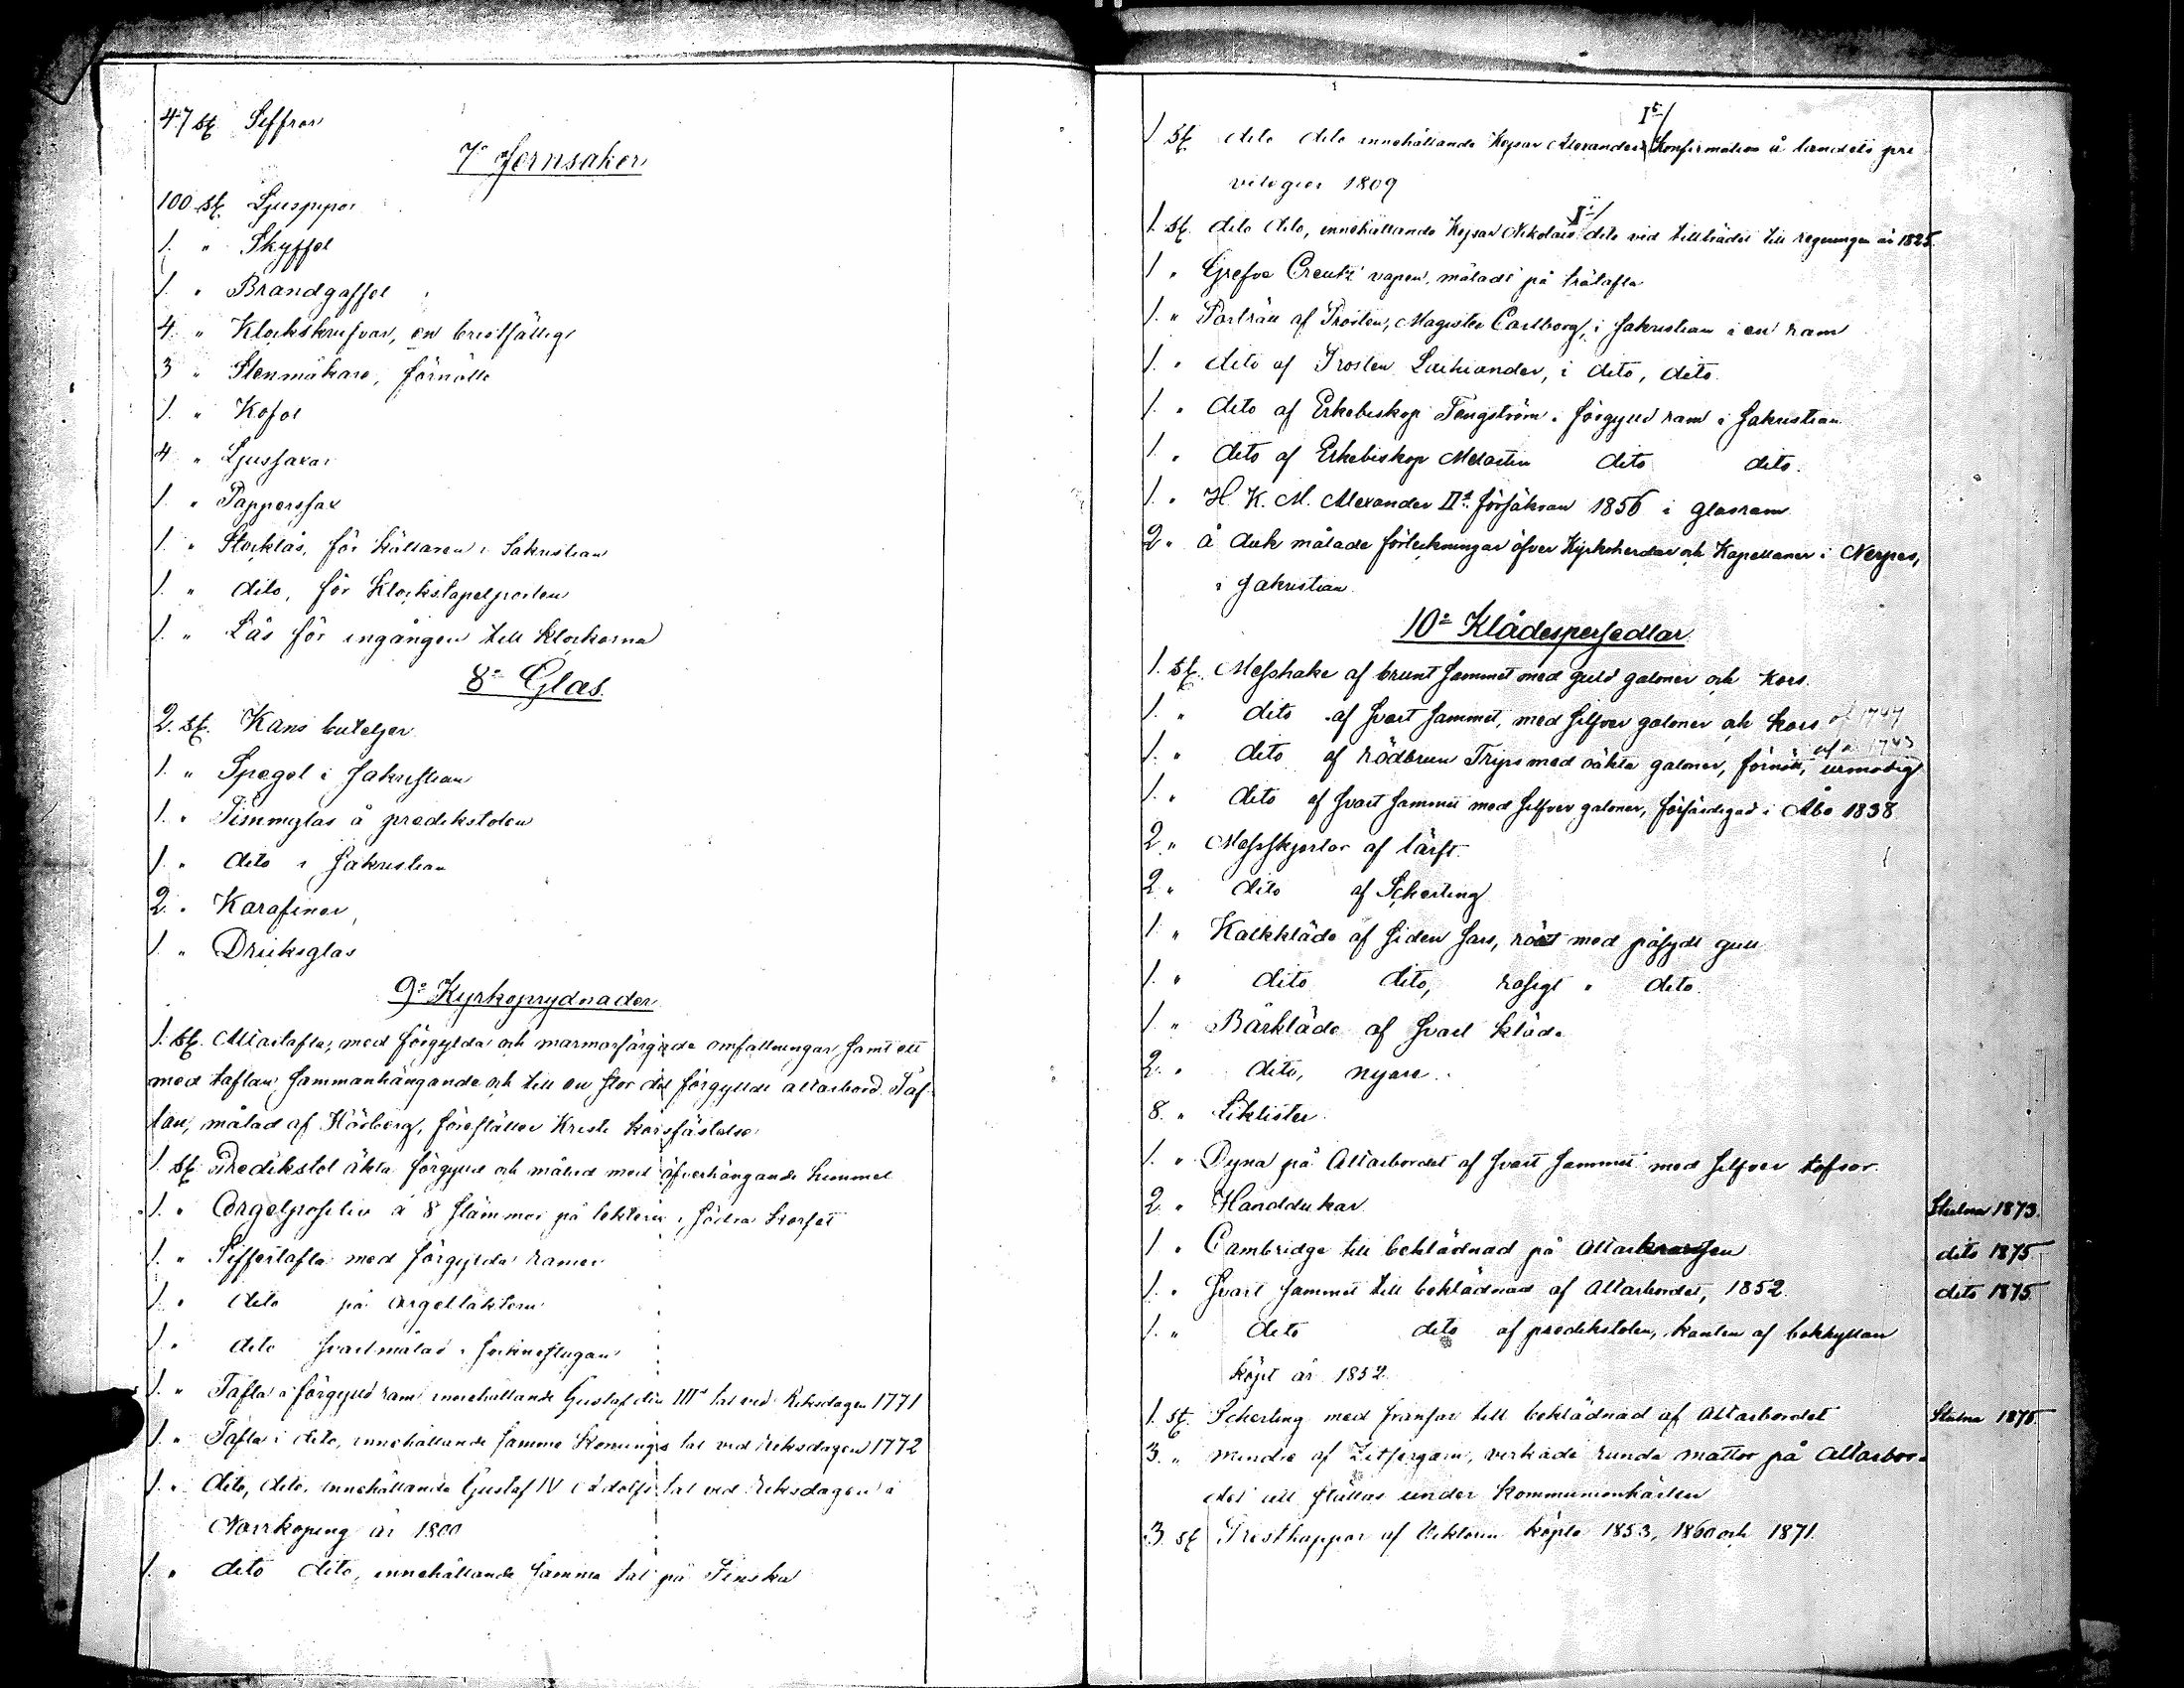 47 st. Siffror
7º Jernsaker
100 st. Ljuspipor
1. " Skyffel
1. " Brandgaffel
4. " Klockskrufvar, en bristfällig
3 " Stenmäkare, förnötte
1. " Kofot
4 " Ljussaxar
1. " Papperssax
1. " Stocklås, för källaren i Sakristian
1. " dito, för Klockstapelporten
1. " Lås för ingången till klockorna
8º Glas.
2. st. Kans buteljer
1. " Spegel i Sakristian
1. " Timmglas å predikstolen
1. " dito i Sakristian
2. " Karafiner
1. " Dricksglas
9º Kyrkoprydnader
1. st. Altartafla, med förgylda och marmorfärgade omfattningar samt ett
med taflan sammanhängande och till en stor del förgylldt altarbord. Taf-
lan, målad af Hörberg, föreställer Kristi korsfästelse
1 st. Predikstol äkta förgylld och målad med öfverhängande himmel
1. " Orgelpositiv à 8 stämmor på läktern i södra korset
1. " Siffertafla med förgylda ramer
1. " dito på orgelläktern
1. " dito svartmålad i sockenstugan
1. " Tafla i förgylld ram innehållande Gustaf den III:s tal ved Riksdagen 1771
1. " Tafla i dito, innehållande samme Konungs tal vid riksdagen 1772
1. " dito, dito, innehållande Gustaf IV Adolfs tal ved Riksdagen i
Norrköping år 1800
1. " dito dito, innehållande samma tal på Finska
I:s/
1 st. dito dito innehållande Kejsar Alexanders Konfirmation å landets pri
vilegier 1809
I:s/
1. st. dito dito, innehållande Kejsar Nikolais dito vid tillträdet till regeringen år 1825.
1 " Grefve Creutz' vapen, måladt på trätafla
1. " Porträtt af Prosten, Magister Carlborg, i Sakristian i en ram
1. " dito af Prosten , i dito, dito.
1. " dito af Erkebiskop Tengström i förgylld ram i Sakristian
1. " dito af Erkebiskop Melartin dito dito.
1. " H. K. M. Alexander II:s försäkran 1856 i glasram
2. " å duk målade förteckningar öfver Kyrkoherdar och Kapellaner i Nerpes,
i Sakristian
10º Klädespersedlar
1. st. Messhake af brunt sammet med guld galoner och kors.
1. " dito af svart sammet, med silfver galoner och kors af 1744
af år 1743
1. " dito af rödbrun Trips med oäkta galoner, förnött, urmodig
1. " dito af svart sammet med silfver galoner, förfärdigad i Åbo 1838
2. " Messskjortor af lärft.
2. " dito af Scherting
1. " Kalkkläde af siden sars, rödt med påsydt gull
1. " dito dito, rosigt " dito.
1 " Bårkläde af svart kläde
2. " dito, nyare.
8. " Liklister.
1. " Dyna på Altarbordet af svart sammet med silfver tofsor.
2. " Handdukar Stulna 1873.
1 " Cambridge till beklädnad på Altarkransen dito 1875.
1. " Svart sammet till beklädnad af Altarbordet, 1852. dito 1875
1. " dito dito af predikstolen, kanten af bokhyllan
köpt år 1852.
1. st. Scherting med fransar till beklädnad af Altarbordet Stulna 1875.
3. " mindre af Zefirgarn, virkade runda mattor på Altarbor-
det att ställas under kommunionkärlen
3. st Prestkappor af köpta 1853, 1860 och 1871.